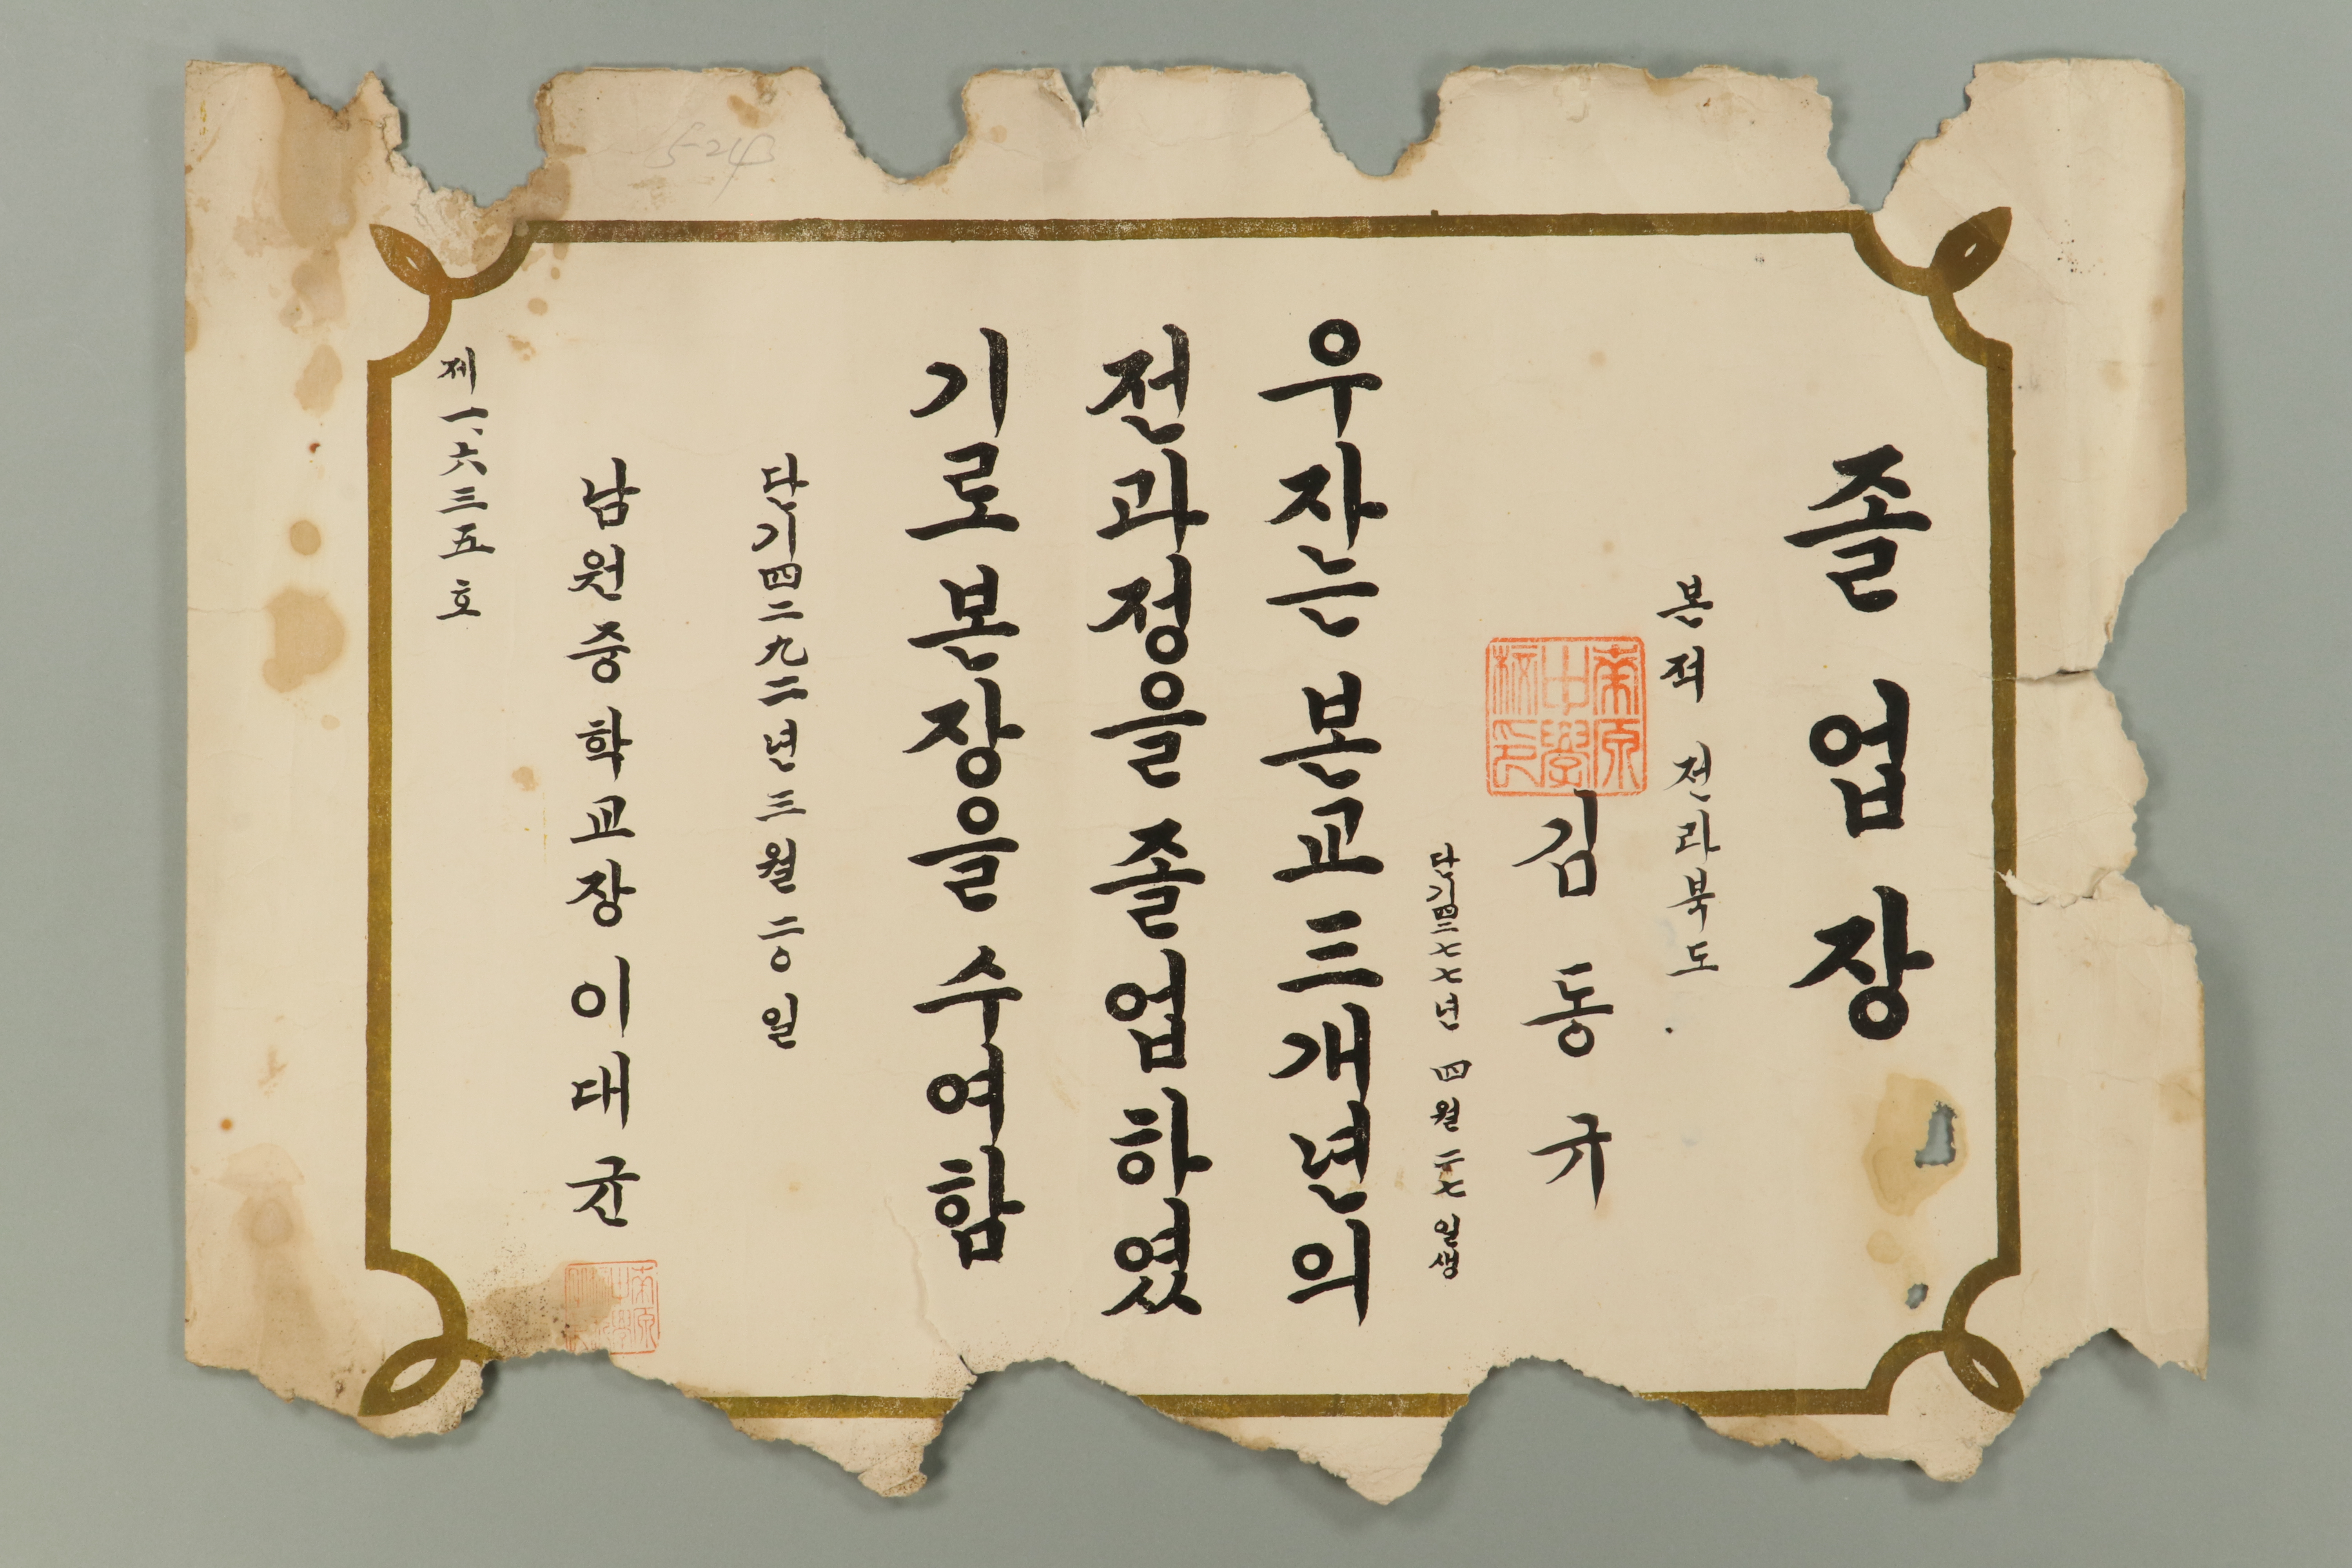 졸업장
본적 전라북도
南原
中學
校印
김동규
단기四二七七년 四월 二七일생
우자는 본교 三개년의
전과정을 졸업하였
기로 본장을 수여함
단기四二九二년 三월 二〇일
남원중학교장 이대균
제一、六三五호
5-24